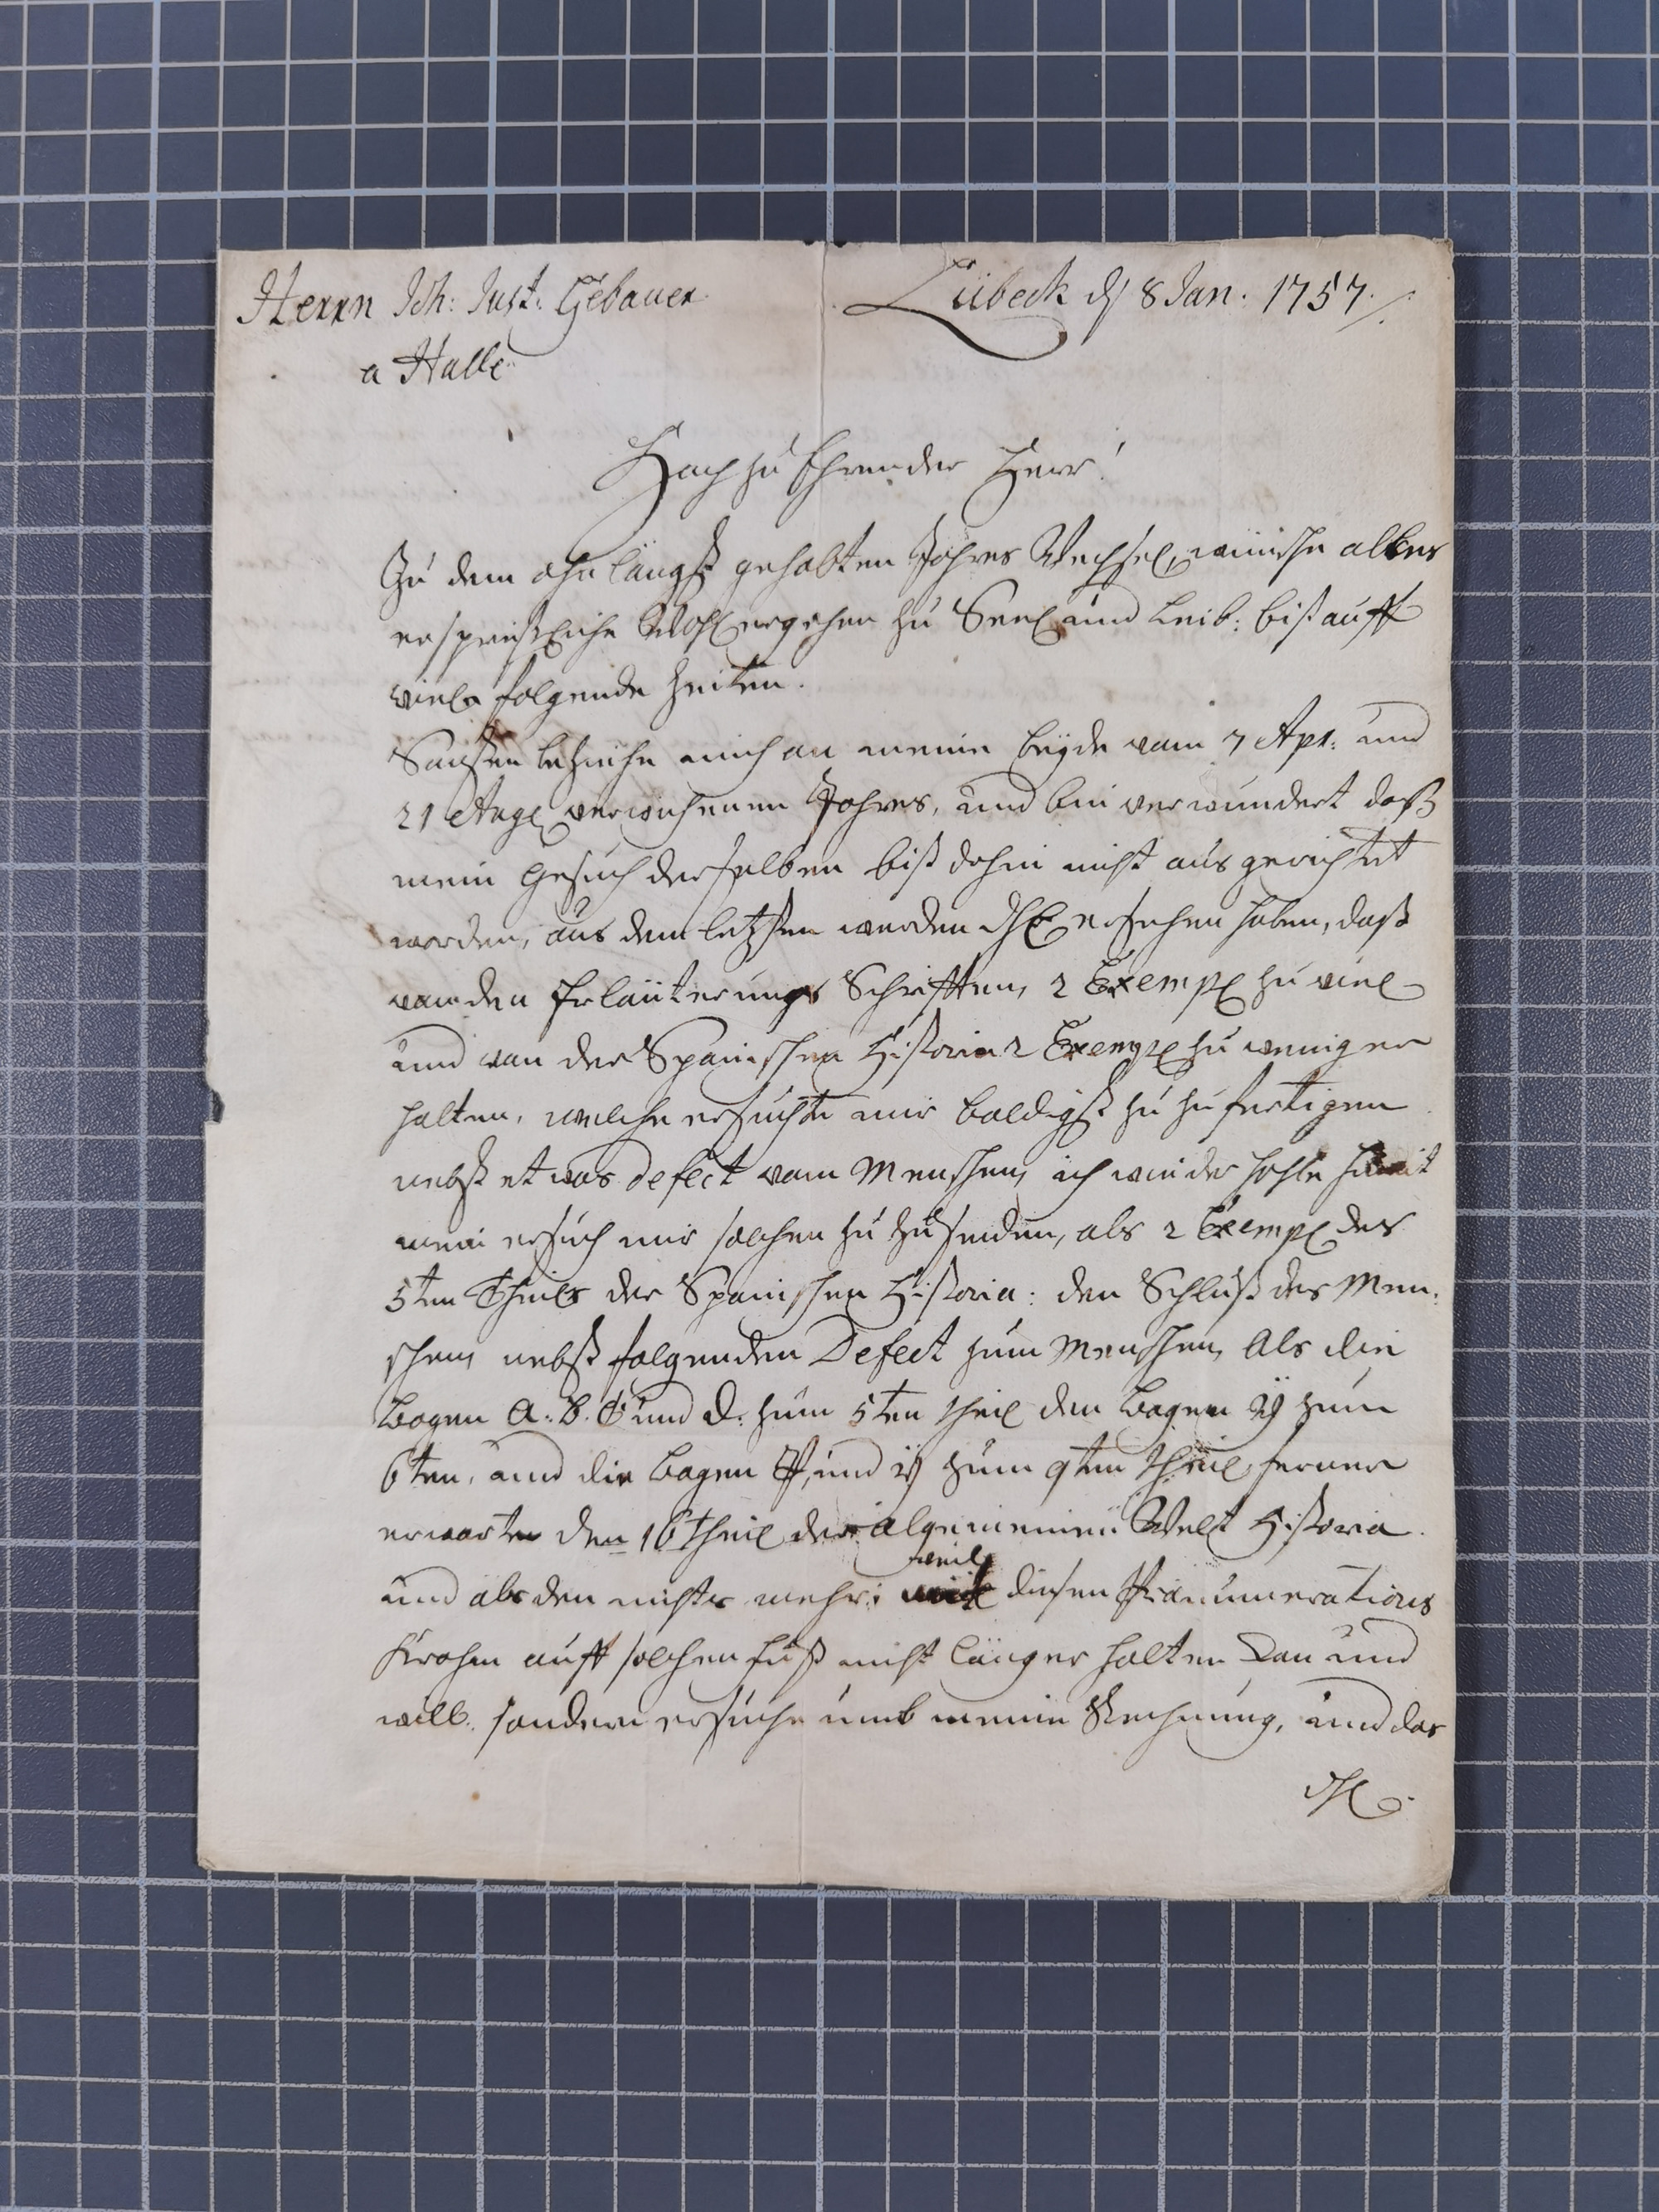 Herrn Joh: Just: Gebauer
a Halle
Lübeck d 8 Jan: 1757.
Hoch zu Ehrender Herr!
Zu dem ohnlängst gehabten Jahres Wechsel, wünsche alles
ersprießliche Wohlergehen zu Seel und Leib: biß auff
viele folgende Zeiten.
Sonsten beziehe mich an meine beyde vom 7 Apr: und
21 Aug verwichenen Jahres, und bin verwundert daß
mein Gesuch derselben biß dahin nicht ausgerichtet
worden, aus dem letzten werden ersehen haben, daß
von den Erläuterungs Schrifften, 2 Exempl zu viel
und von der Spanischen Historia 2 Exempl zu wenig er
halten, welche ersuchte mir baldigst zu zu fertigen
nebst etwas defect vom Menschen, ich wiederhohle hiemit
mein ersuch mir solchen zu zu senden, als 2 Exempl des
5ten Theils der Spanischen Historia: den Schluß des Men:
schen, nebst folgenden Defect zum Menschen, Als die
Bogen A. B. C und D. zum 5ten theil den Bogen zum
6ten, und die Bogen und zum 9ten theil, ferner
erwarte den 16 theil der algemeinen Welt Historia
und als den nichts mehr: weil diesen Pränumerations
Krahm auff solchen fuß nicht länger halten kan und
will. sondern ersuche umb meine Rechnung, und das